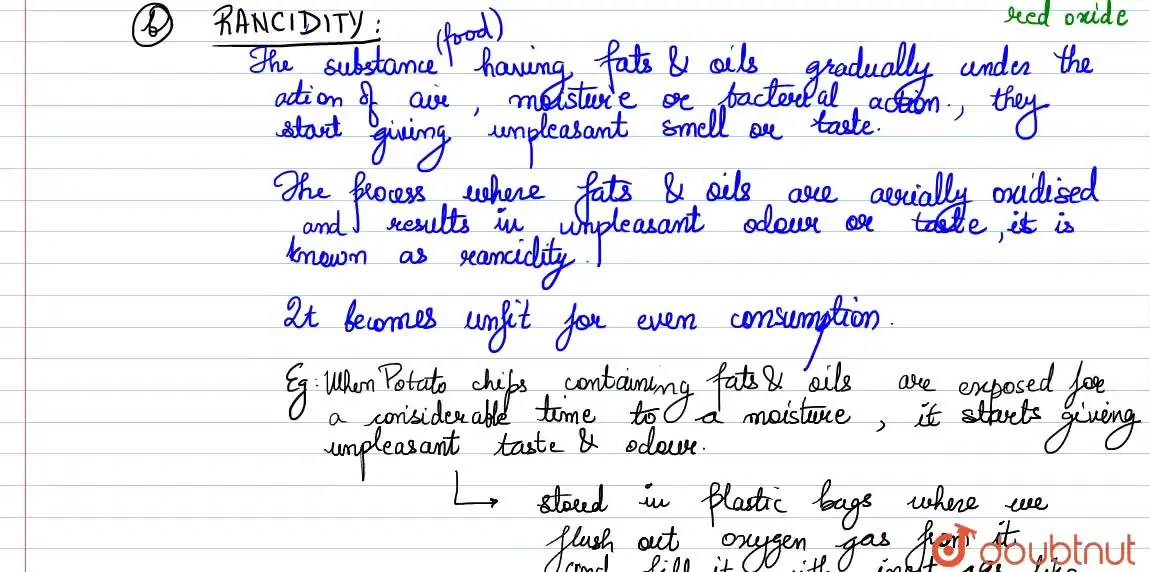 red oxide
b RANCIDITY :
(food)
The substance having fats & oils gradually under the
action of air , moisture or bacterial action , they
start giving unpleasant smell or taste.
The process where fats & oils are aerially oxidised
and results in unpleasant odour or taste , it is
known as rancidity.
It becomes unfit for even consumption.
Eg : When Potato chips containing fats & oils are exposed for
a considerable time to a moisture , it starts giving
unpleasant taste & odour.
↳ stored in plastic bags where we
flush out oxygen gas from it
and fill it with inert gas like
doubtnut